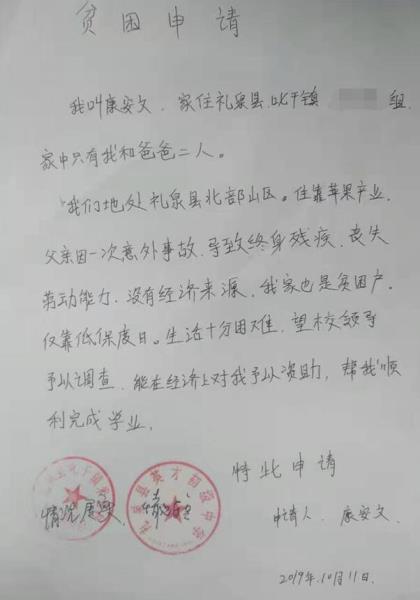 贫困申请
我叫康安文，家住礼泉县叱干镇 组，
家中只有我和爸爸二人。
我们地处礼泉县北部山区。住靠苹果产业，
父亲因一次意外事故，导致终身残疾，丧失
劳动能力，没有经济来源，我家也是贫困户，
仅靠低保度日。生活十分困难，望校领导
予以调查，能在经济上对我予以资助，帮我顺
利完成学业。
特此申请
情况属实
礼泉县英才初级中学
申请人，康安文。
2019.10月11日.